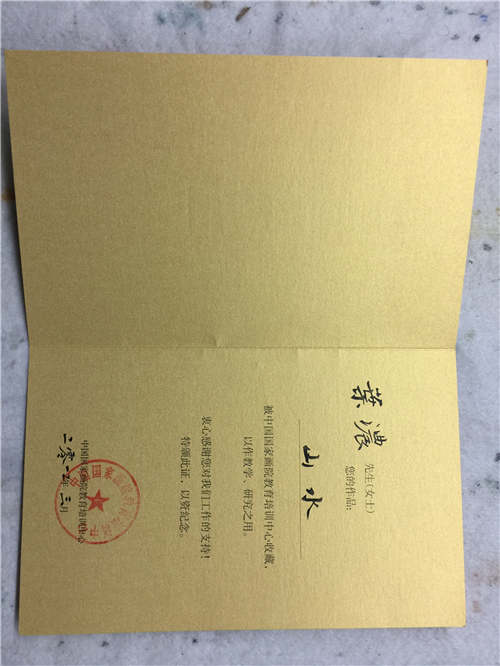 葉濃 先生(女士)
您的作品:
山水
被中国国家画院教育培训中心收藏,
以作教学、研究之用。
衷心感谢您对我们工作的支持!
特颁此证,以资纪念。
中国国家画院教育培训中心
二零一五年三月